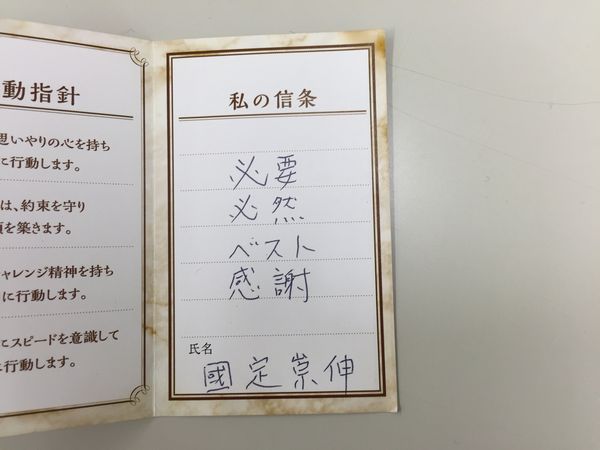 動指針
思いやりの心を持ち
に行動します。
は、約束を守り
を築きます。
ャレンジ精神を持ち
に行動します。
にスピードを意識して
に行動します。
私の信条
必要
必然
ベスト
感謝
氏名
國定崇伸